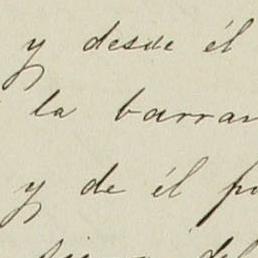 y desde él
la barran
y de él